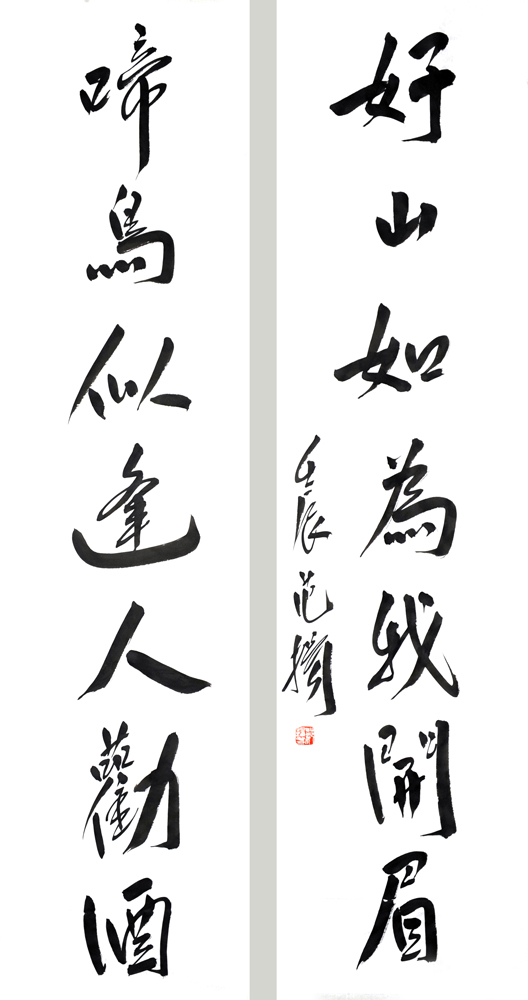 好山如為我開眉
壬辰范
啼鳥似逢人勸酒